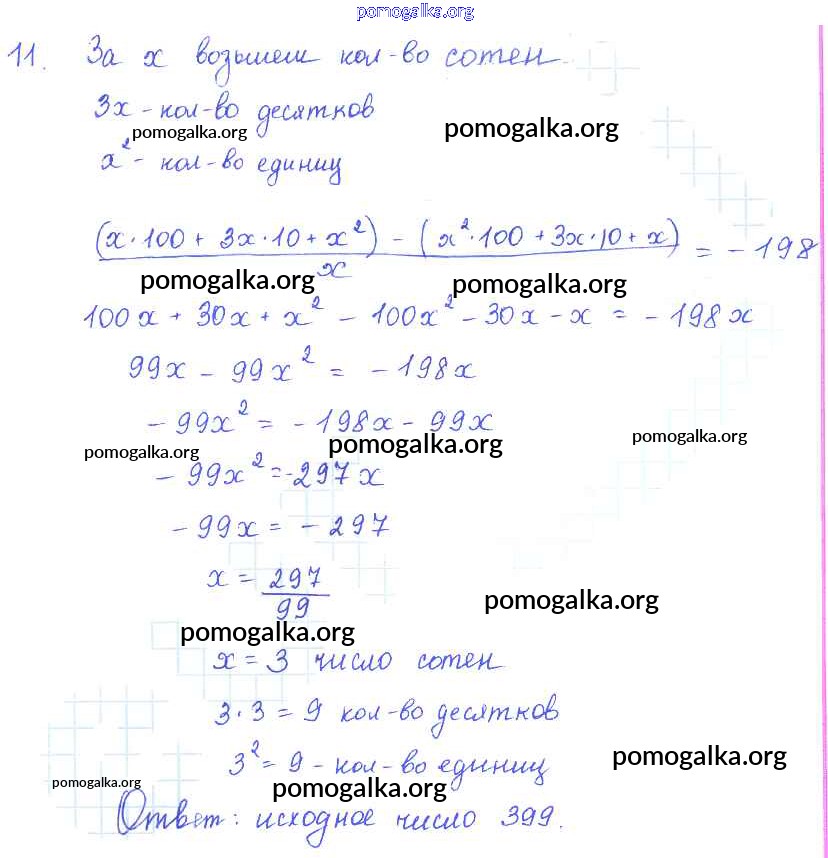 pomogalka.org
11. За x возьмем кол-во сотен
3x - кол-во десятков
pomogalka.org pomogalka.org
x² - кол-во единиц
(x·100 + 3x·10 + x²) - (x²·100 + 3x·10 + x) / x = -198
pomogalka.org pomogalka.org
100x + 30x + x² - 100x² - 30x - x = -198x
99x - 99x² = -198x
-99x² = -198x - 99x
pomogalka.org pomogalka.org pomogalka.org
-99x² = -297x
-99x = -297
x = 297/99
pomogalka.org
pomogalka.org
x = 3 число сотен
3·3 = 9 кол-во десятков
3² = 9 - кол-во единиц
pomogalka.org
pomogalka.org pomogalka.org
Ответ: исходное число 399.